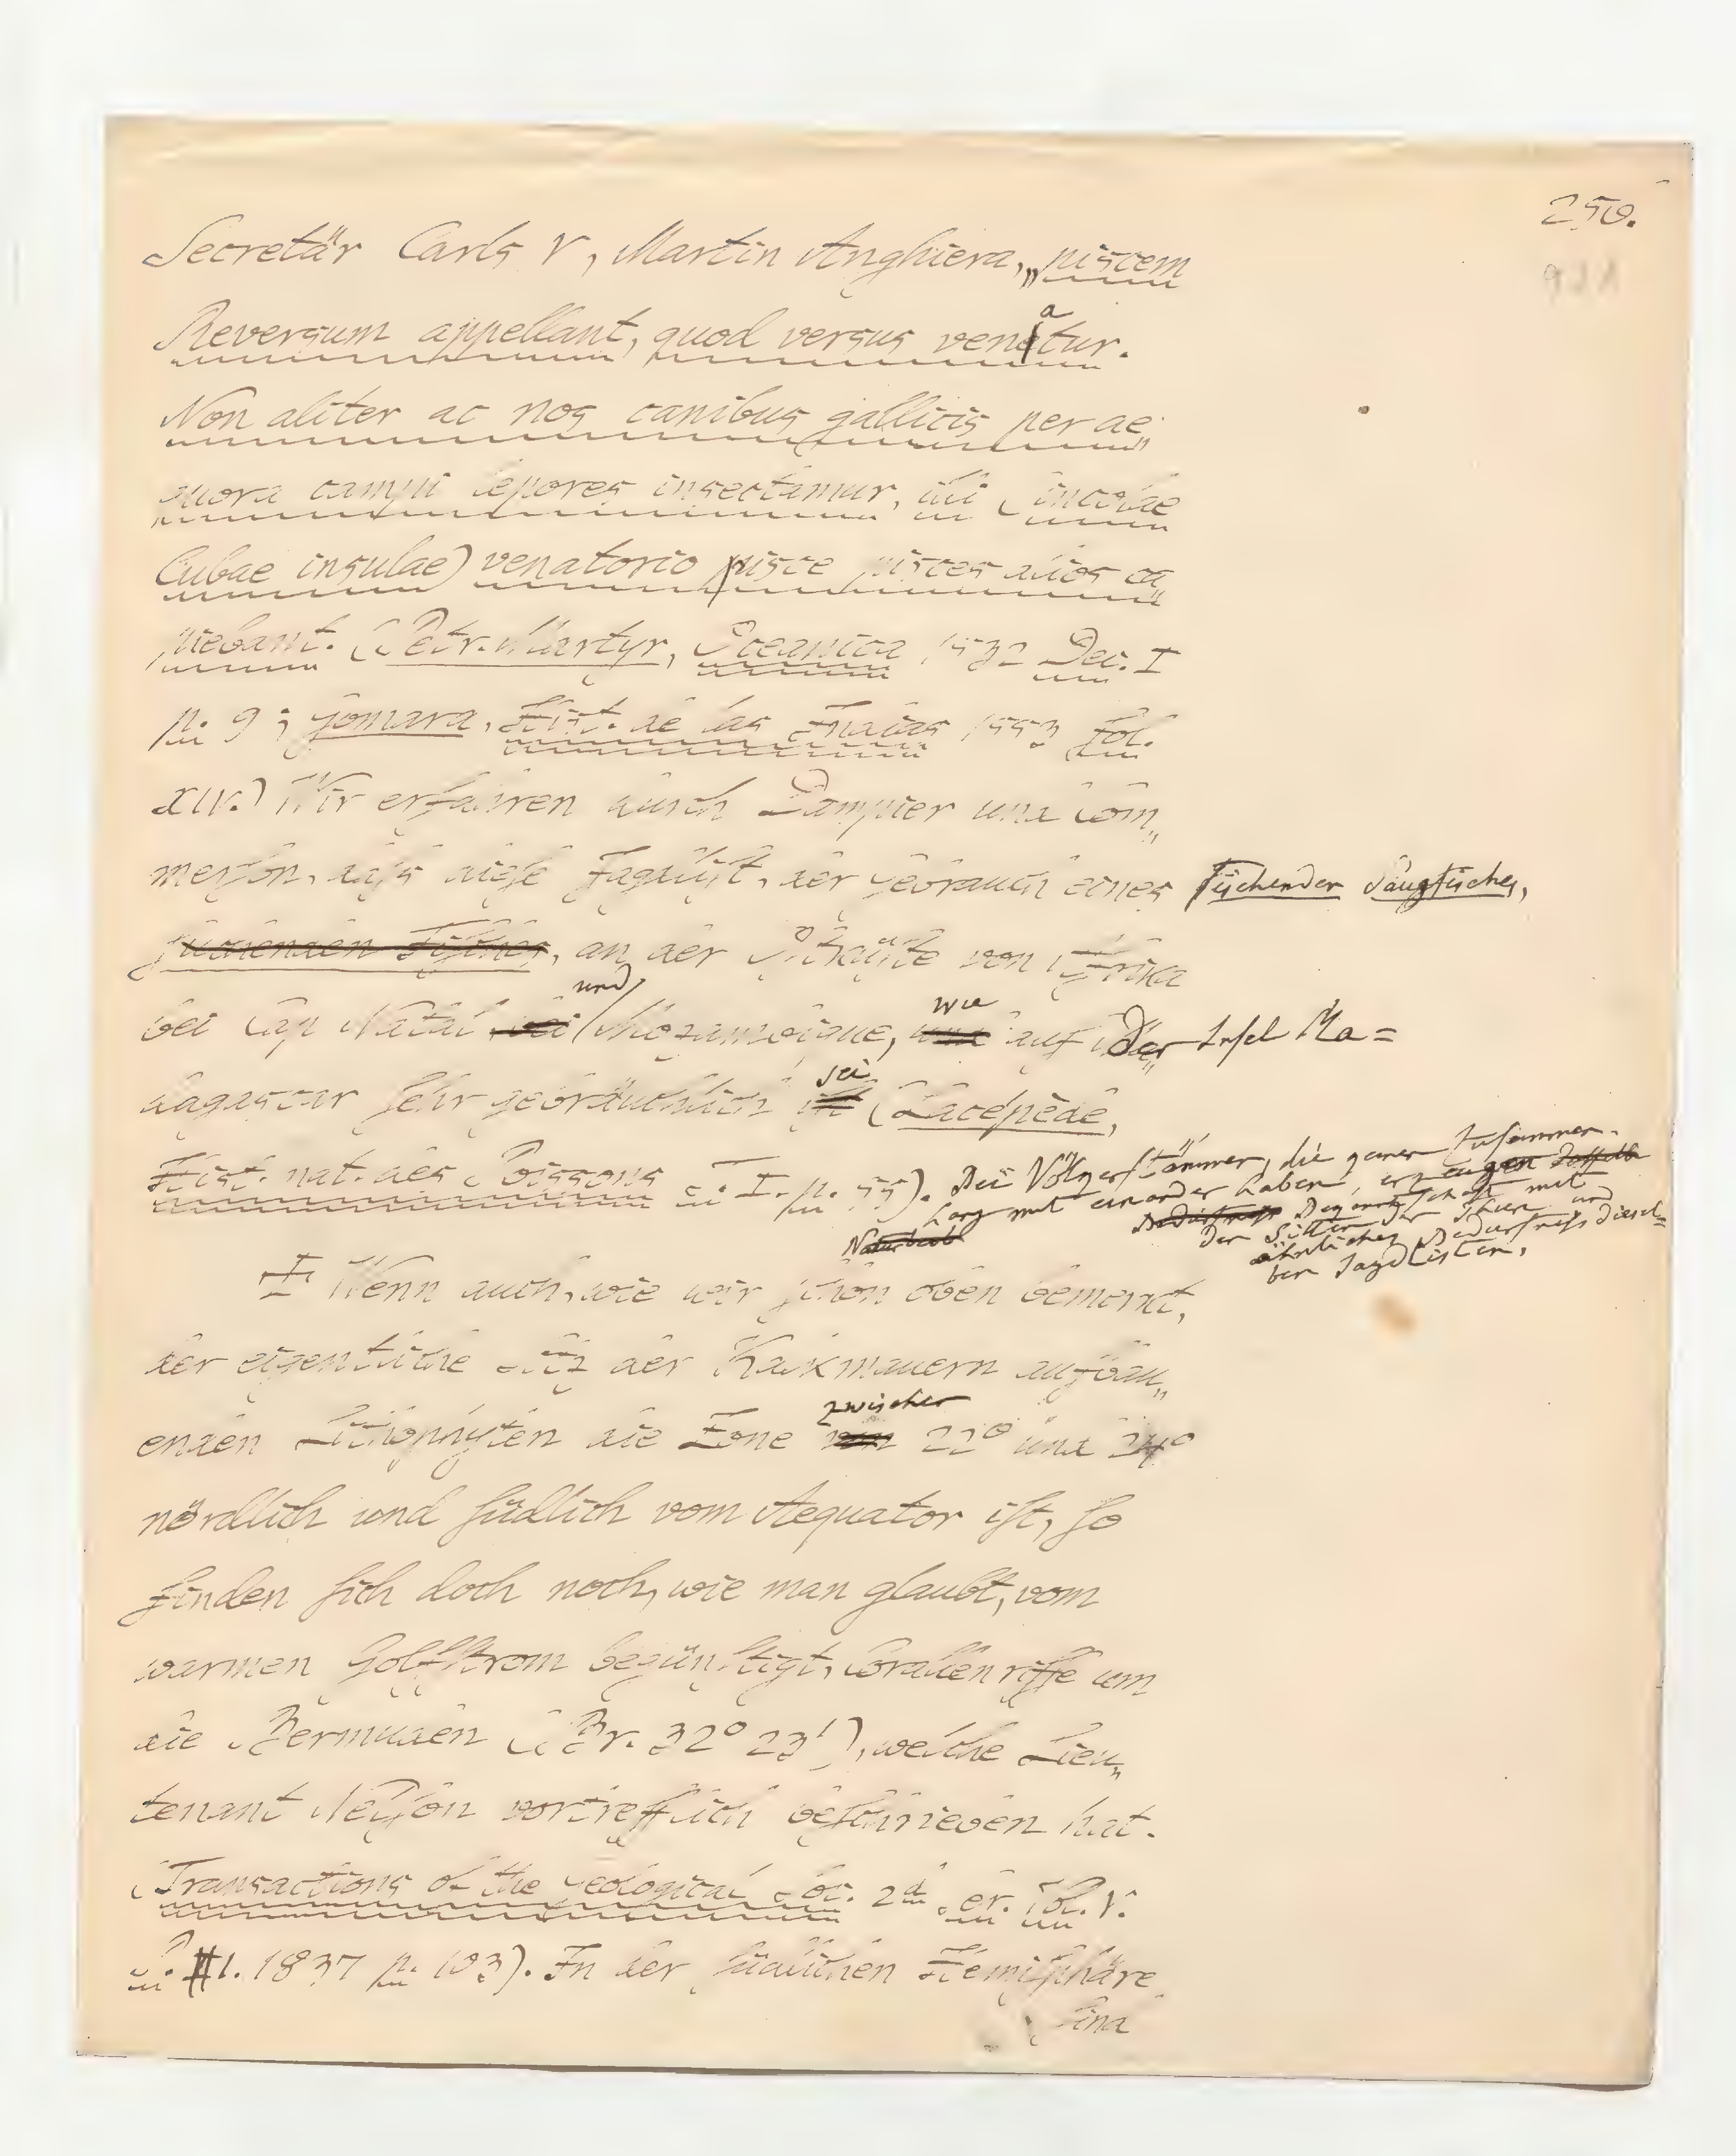 250.
921
Secretär Carls V, Martin Anghiera, „piscem
Reversum appellant, quod versus venatur.
Non aliter ac nos canibus gallicis per ae„
quora campi lepores insectamur, illi (incolae
Cubae insulae) venatorio pisce pisces alios ca„
piebant. (Petr. Martyr, Oceanica 1532 Dec. I
p. 9; Gomara, Hist. de las Indias 1553 fol.
XIV.) Wir erfahren durch Dampier und Com„
merson, daſs dieſe Jagdliſt, der Gebrauch eines fischender Saugfisches,
an der Oſtküſte von Afrika
bei Cap Natal und Mozambique, wie auf der Insel Ma=
dagascar ſehr gebräuchlich sei (Lacépède,
Hist. nat. des Poissons T. I. p. 55). Die Völkerstämme, die keinen Zusammen-
hang mit einander haben, erzeugen
Bekanntschaft mit
der Sitten der Thiere und
ähnliches Bedürfniss diesel=
ben Jagdlisten.
Wenn auch, wie wir ſchon oben bemerkt,
der eigentliche Sitz der Kalkmauern aufbau„
enden Lithophyten die Zone zwischen 22° und 24°
nördlich und ſüdlich vom Aequator iſt, ſo
finden ſich doch noch, wie man glaubt, vom
warmen Golfſtrom begünſtigt, Corallenriffe um
die Bermuden (Br. 32° 23'), welche Lieu„
tenant Nelſon vortrefflich beſchrieben hat.
(Transactions of the Geological Soc. 2d Ser. Vol. V.
P. 1. 1837 p. 103). In der ſüdlichen Hemiſphäre
ſind